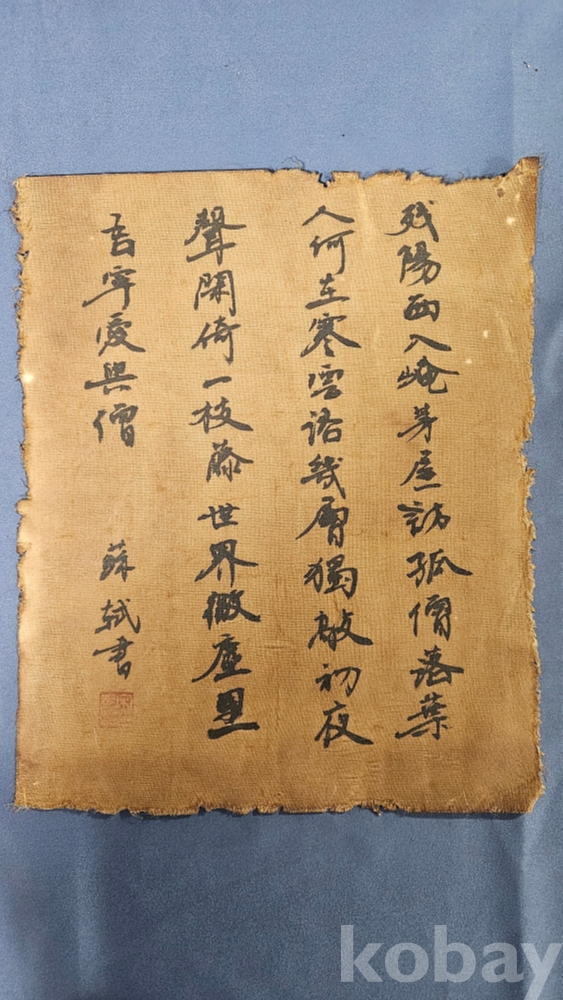 残陽西入崦茅屋訪孤僧落葉
人何在寒雲路幾層獨敲初夜
聲閑倚一枝藤世界微塵里
吾寧愛與僧 蘇軾書
kobay